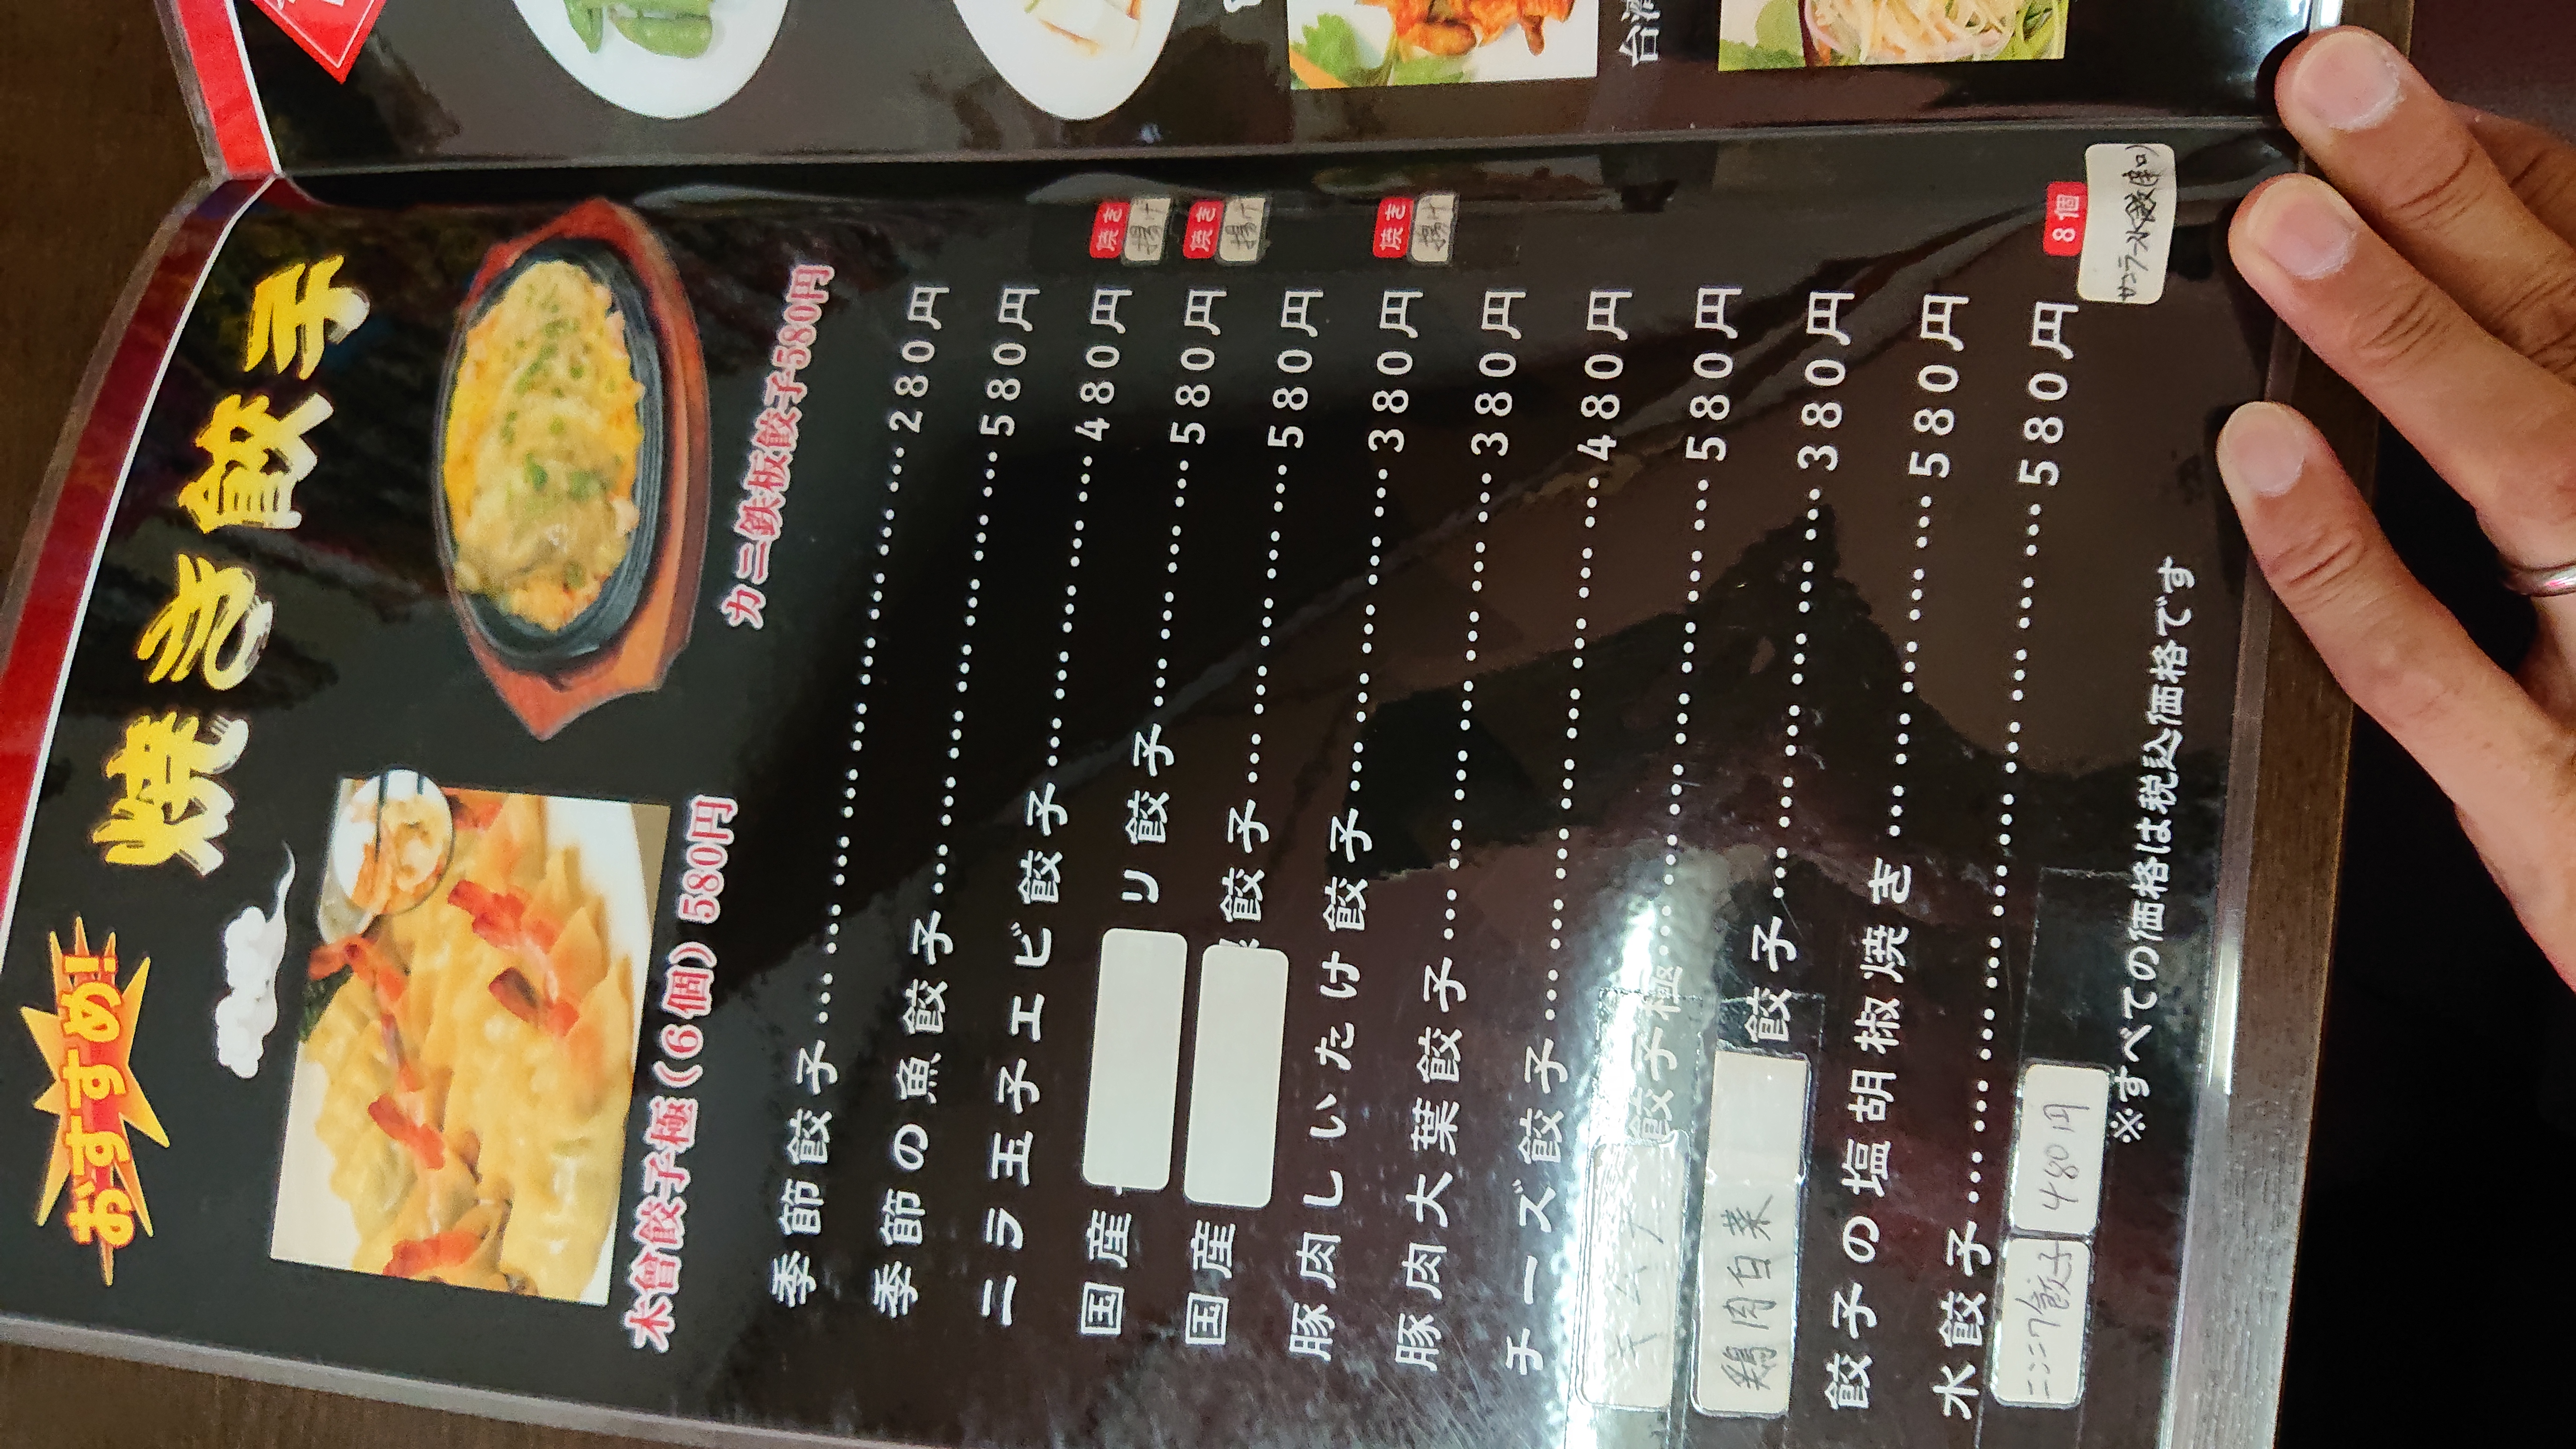 おすすめ!
焼き餃子
木會餃子極(6個)580円
カニ鉄板餃子580円
季節餃子……280円
季節の魚餃子……580円
ニラ玉子エビ餃子……480円 焼き 揚げ
国産 リ餃子……580円 焼き 揚げ
国産 餃子……580円
豚肉しいたけ餃子……380円 焼き 揚げ
豚肉大葉餃子……380円
チーズ餃子……480円
餃子極……580円
鶏肉白菜 餃子……380円
餃子の塩胡椒焼き……580円
水餃子……580円 8個
ニンニク餃子 480円
※すべての価格は税込価格です
台湾